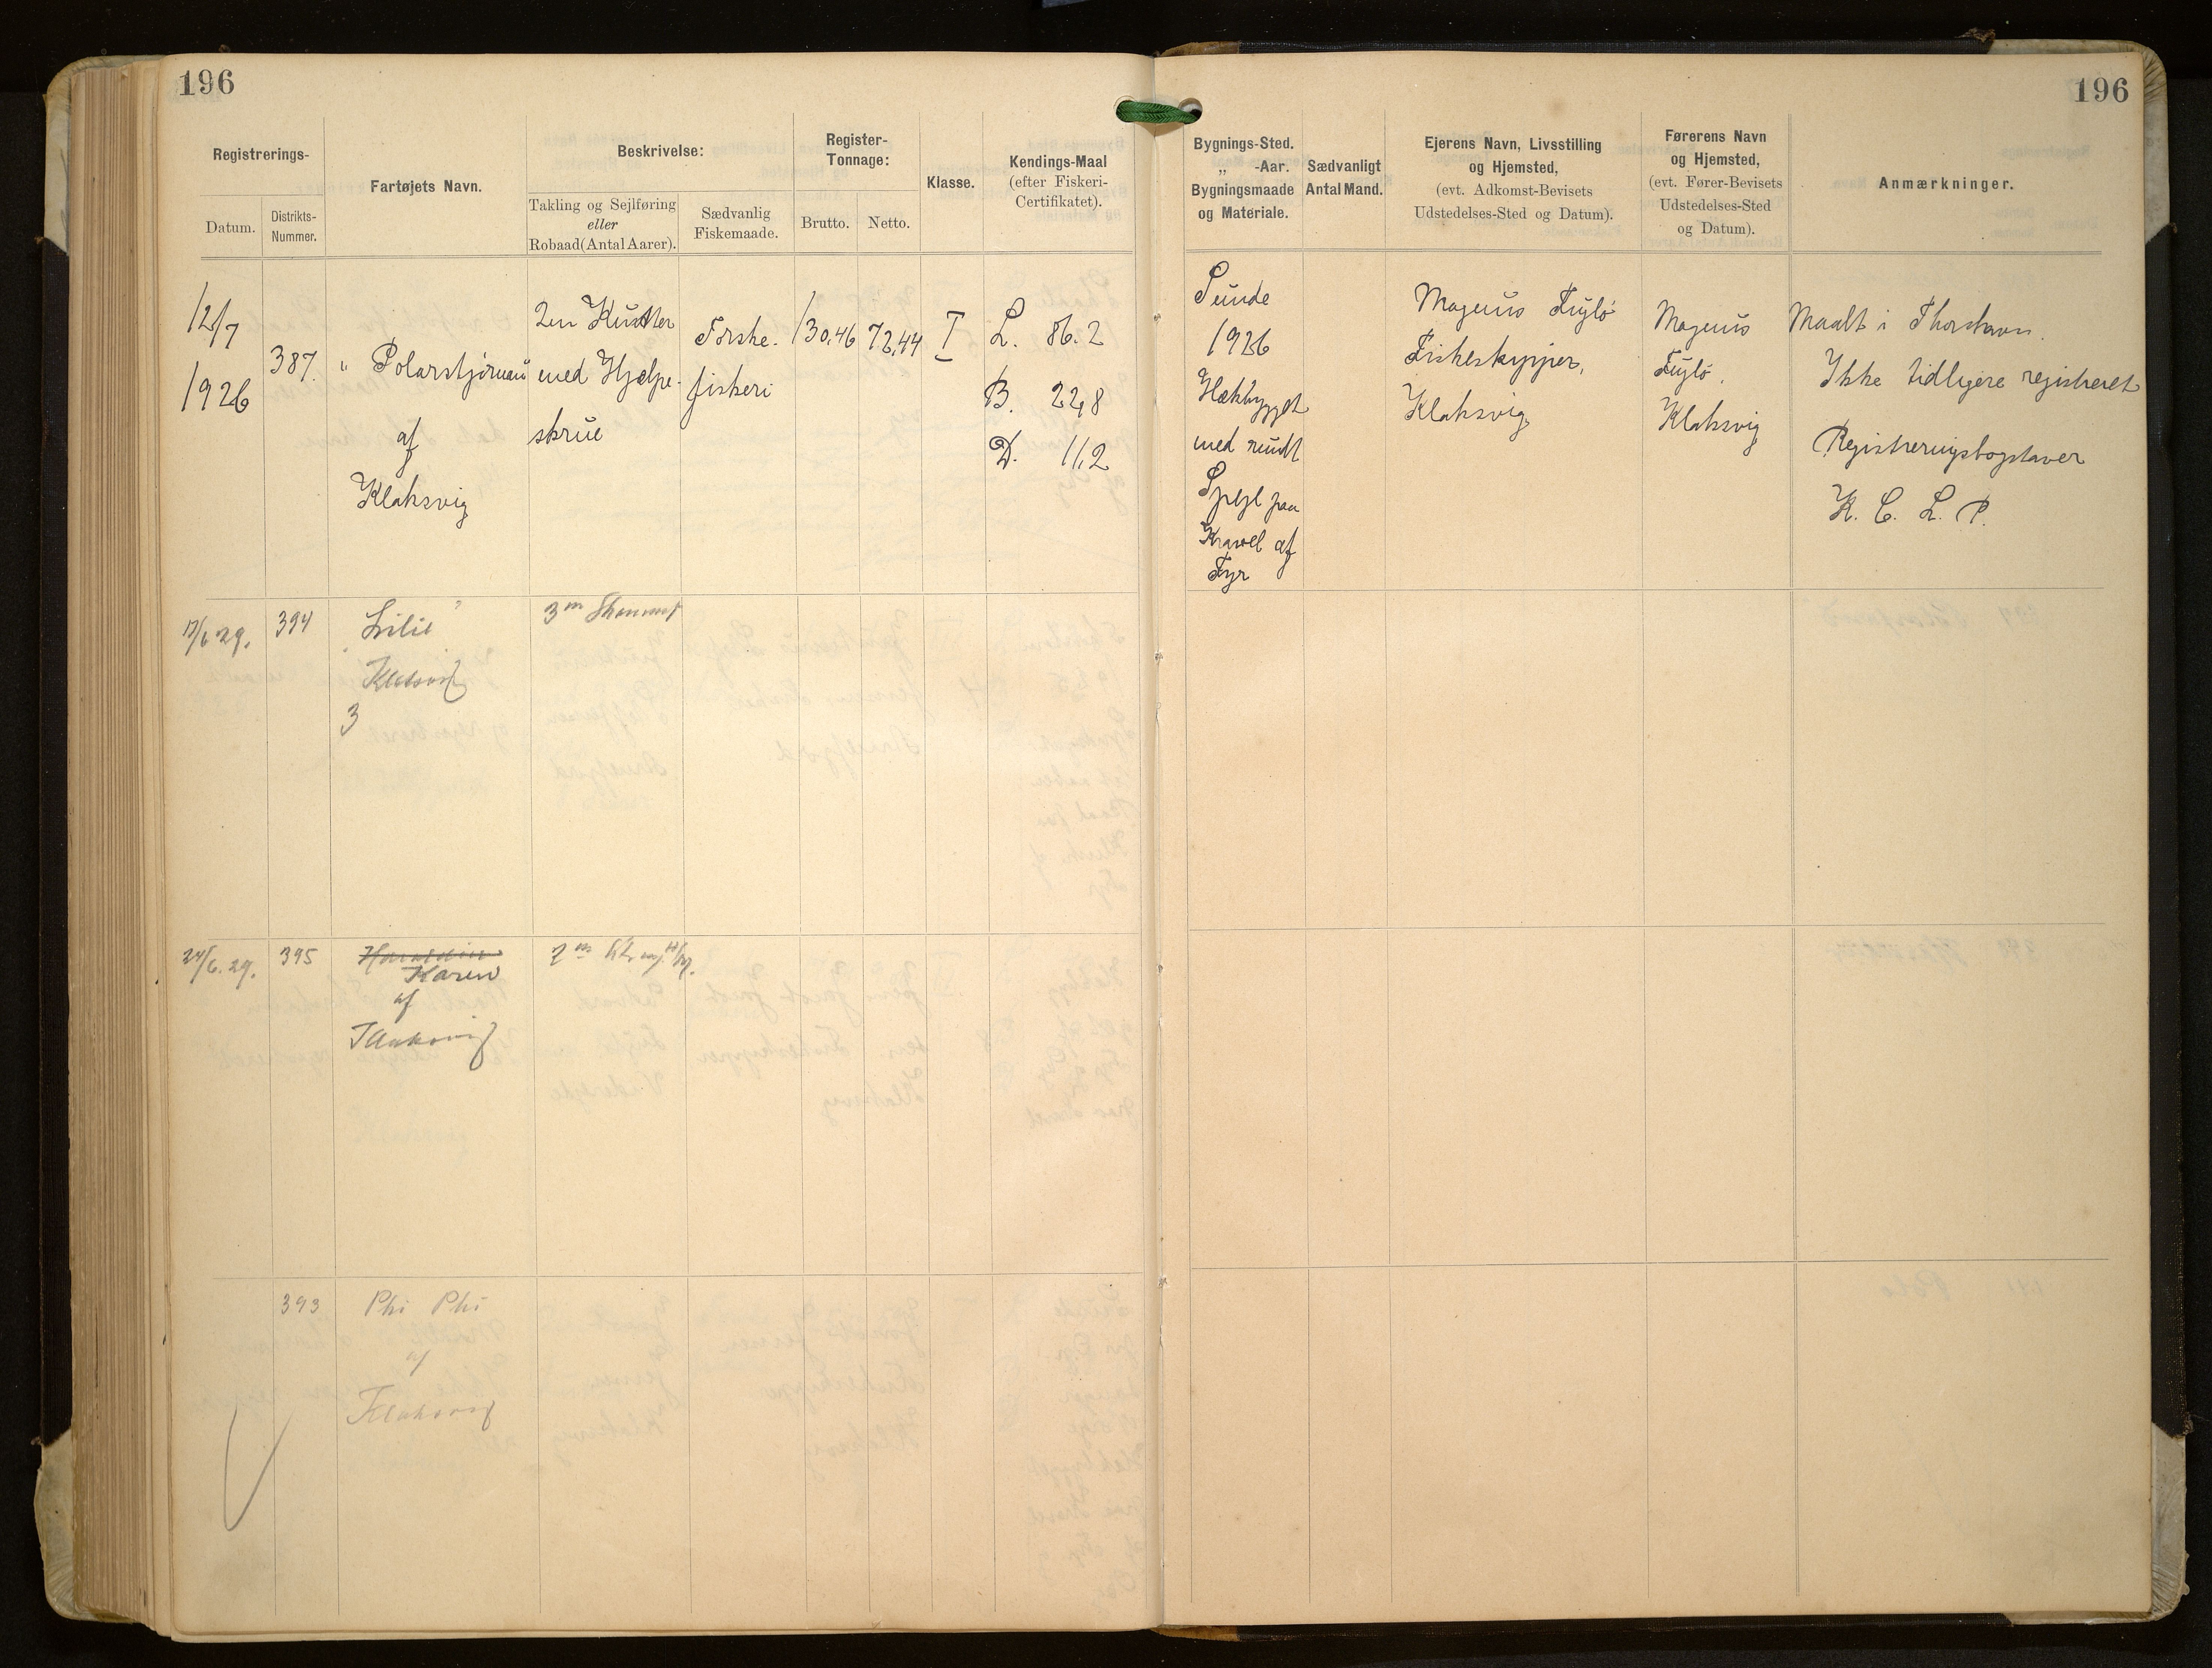 196
196
Registrerings-
Datum.
Distrikts-
Nummer.
Fartøjets Navn.
Beskrivelse:
Takling og Sejlføring
eller
Robaad (Antal Aarer).
Sædvanlig
Fiskemaade.
Register-
Tonnage:
Brutto.
Netto.
Klasse.
Kendings-Maal
(efter Fiskeri-
Certifikatet).
Bygnings-Sted.
„ -Aar.
Bygningsmaade
og Materiale.
Sædvanligt
Antal Mand.
Ejerens Navn, Livsstilling
og Hjemsted,
(evt. Adkomst-Bevisets
Udstedelses-Sted og Datum).
Førerens Navn
og Hjemsted,
(evt. Fører-Bevisets
Udstedelses-Sted
og Datum).
Anmærkninger.
12/7
1926
387.
" Polarstjørnan
af
Klaksvig
2m Kutter
med Hjælpe-
skrue
Torske-
fiskeri
130,46
72,44
I
L. 86.2
B. 22,8
D. 11,2
Sunde
1926
Hækbygget
med rundt
Spejl paa
Kravel af
Fyr
Magnus Fuglø
Fiskeskypper,
Klaksvig
Magnus
Fuglø,
Klaksvig
Maalt i Thorshavn.
Ikke tidligere registreret
Registreringsbogstaver
K. C. L. P.
394
Lilie"
Klaksvig
3
3m
24/6. 29.
395
Karen
af
Klaksvig
2m
393
Phi Phi
af
Klaksvig